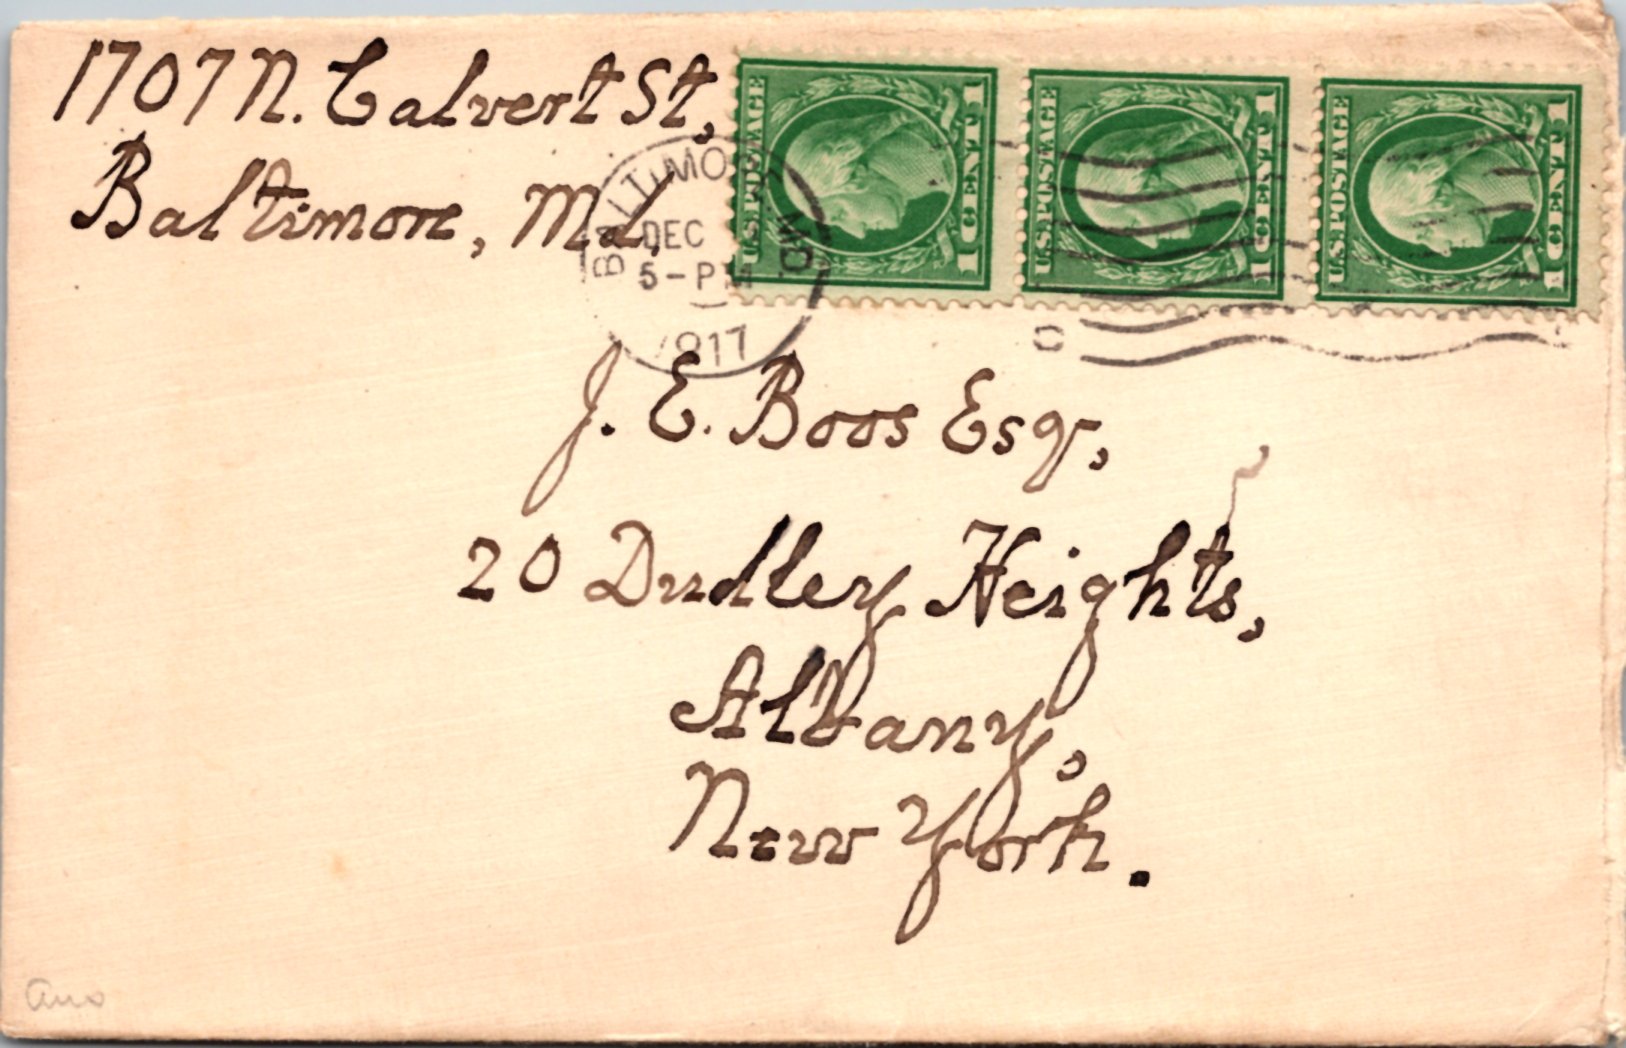 1707 N. Calvert St,
Baltimore, Md,
BALTIMORE MD.
DEC
5-PM
1917
U.S. POSTAGE
1 CENT 1
U.S. POSTAGE
1 CENT 1
U.S. POSTAGE
1 CENT 1
J. E. Boos Esqr,
20 Dudley Heights,
Albany,
New York.